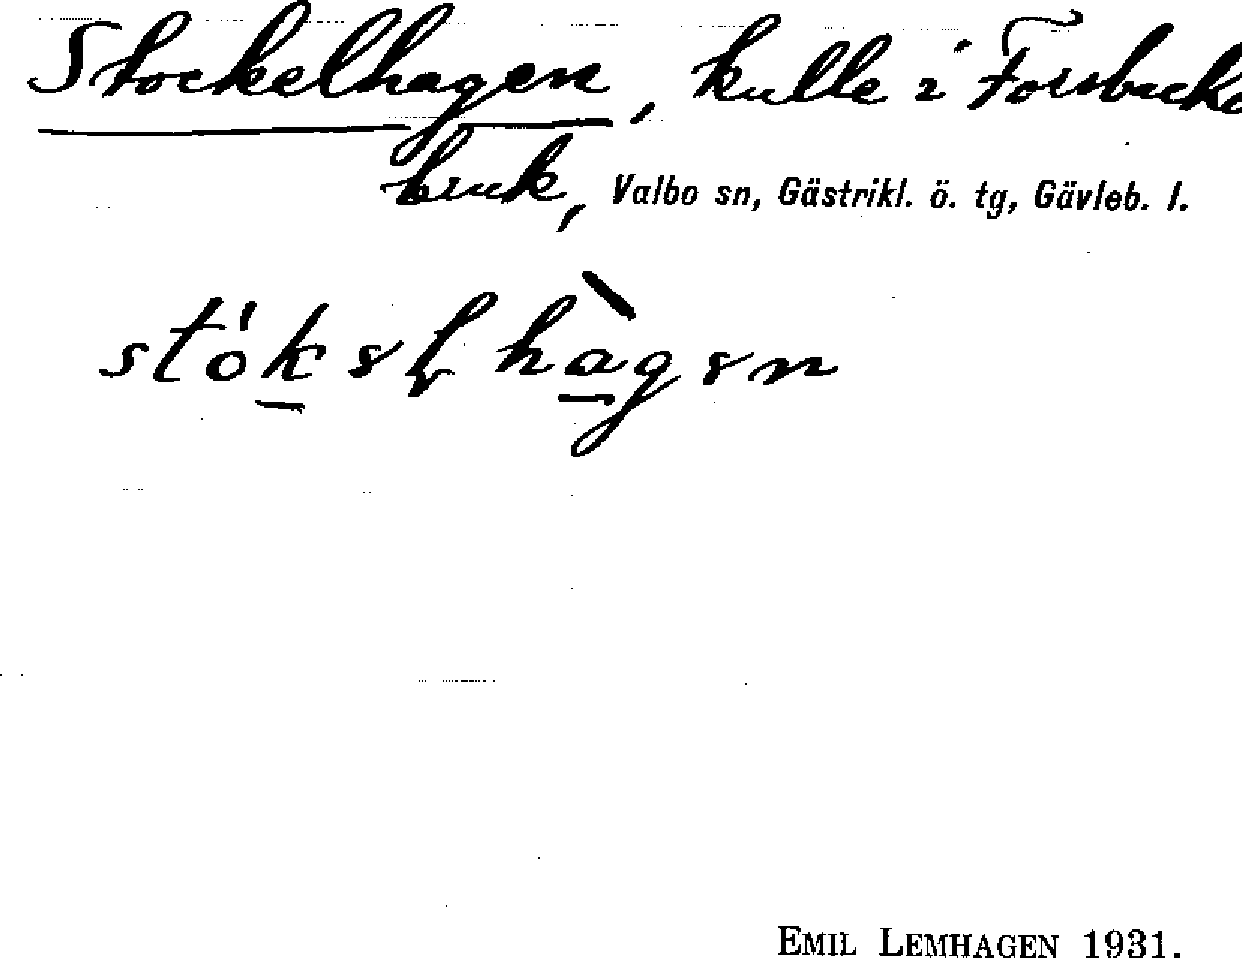 Stockelhagen, kulle i Forsbacka
bruk, Valbo sn, Gästrikl. ö. tg, Gävleb. l.
EMIL LEMHAGEN 1931.